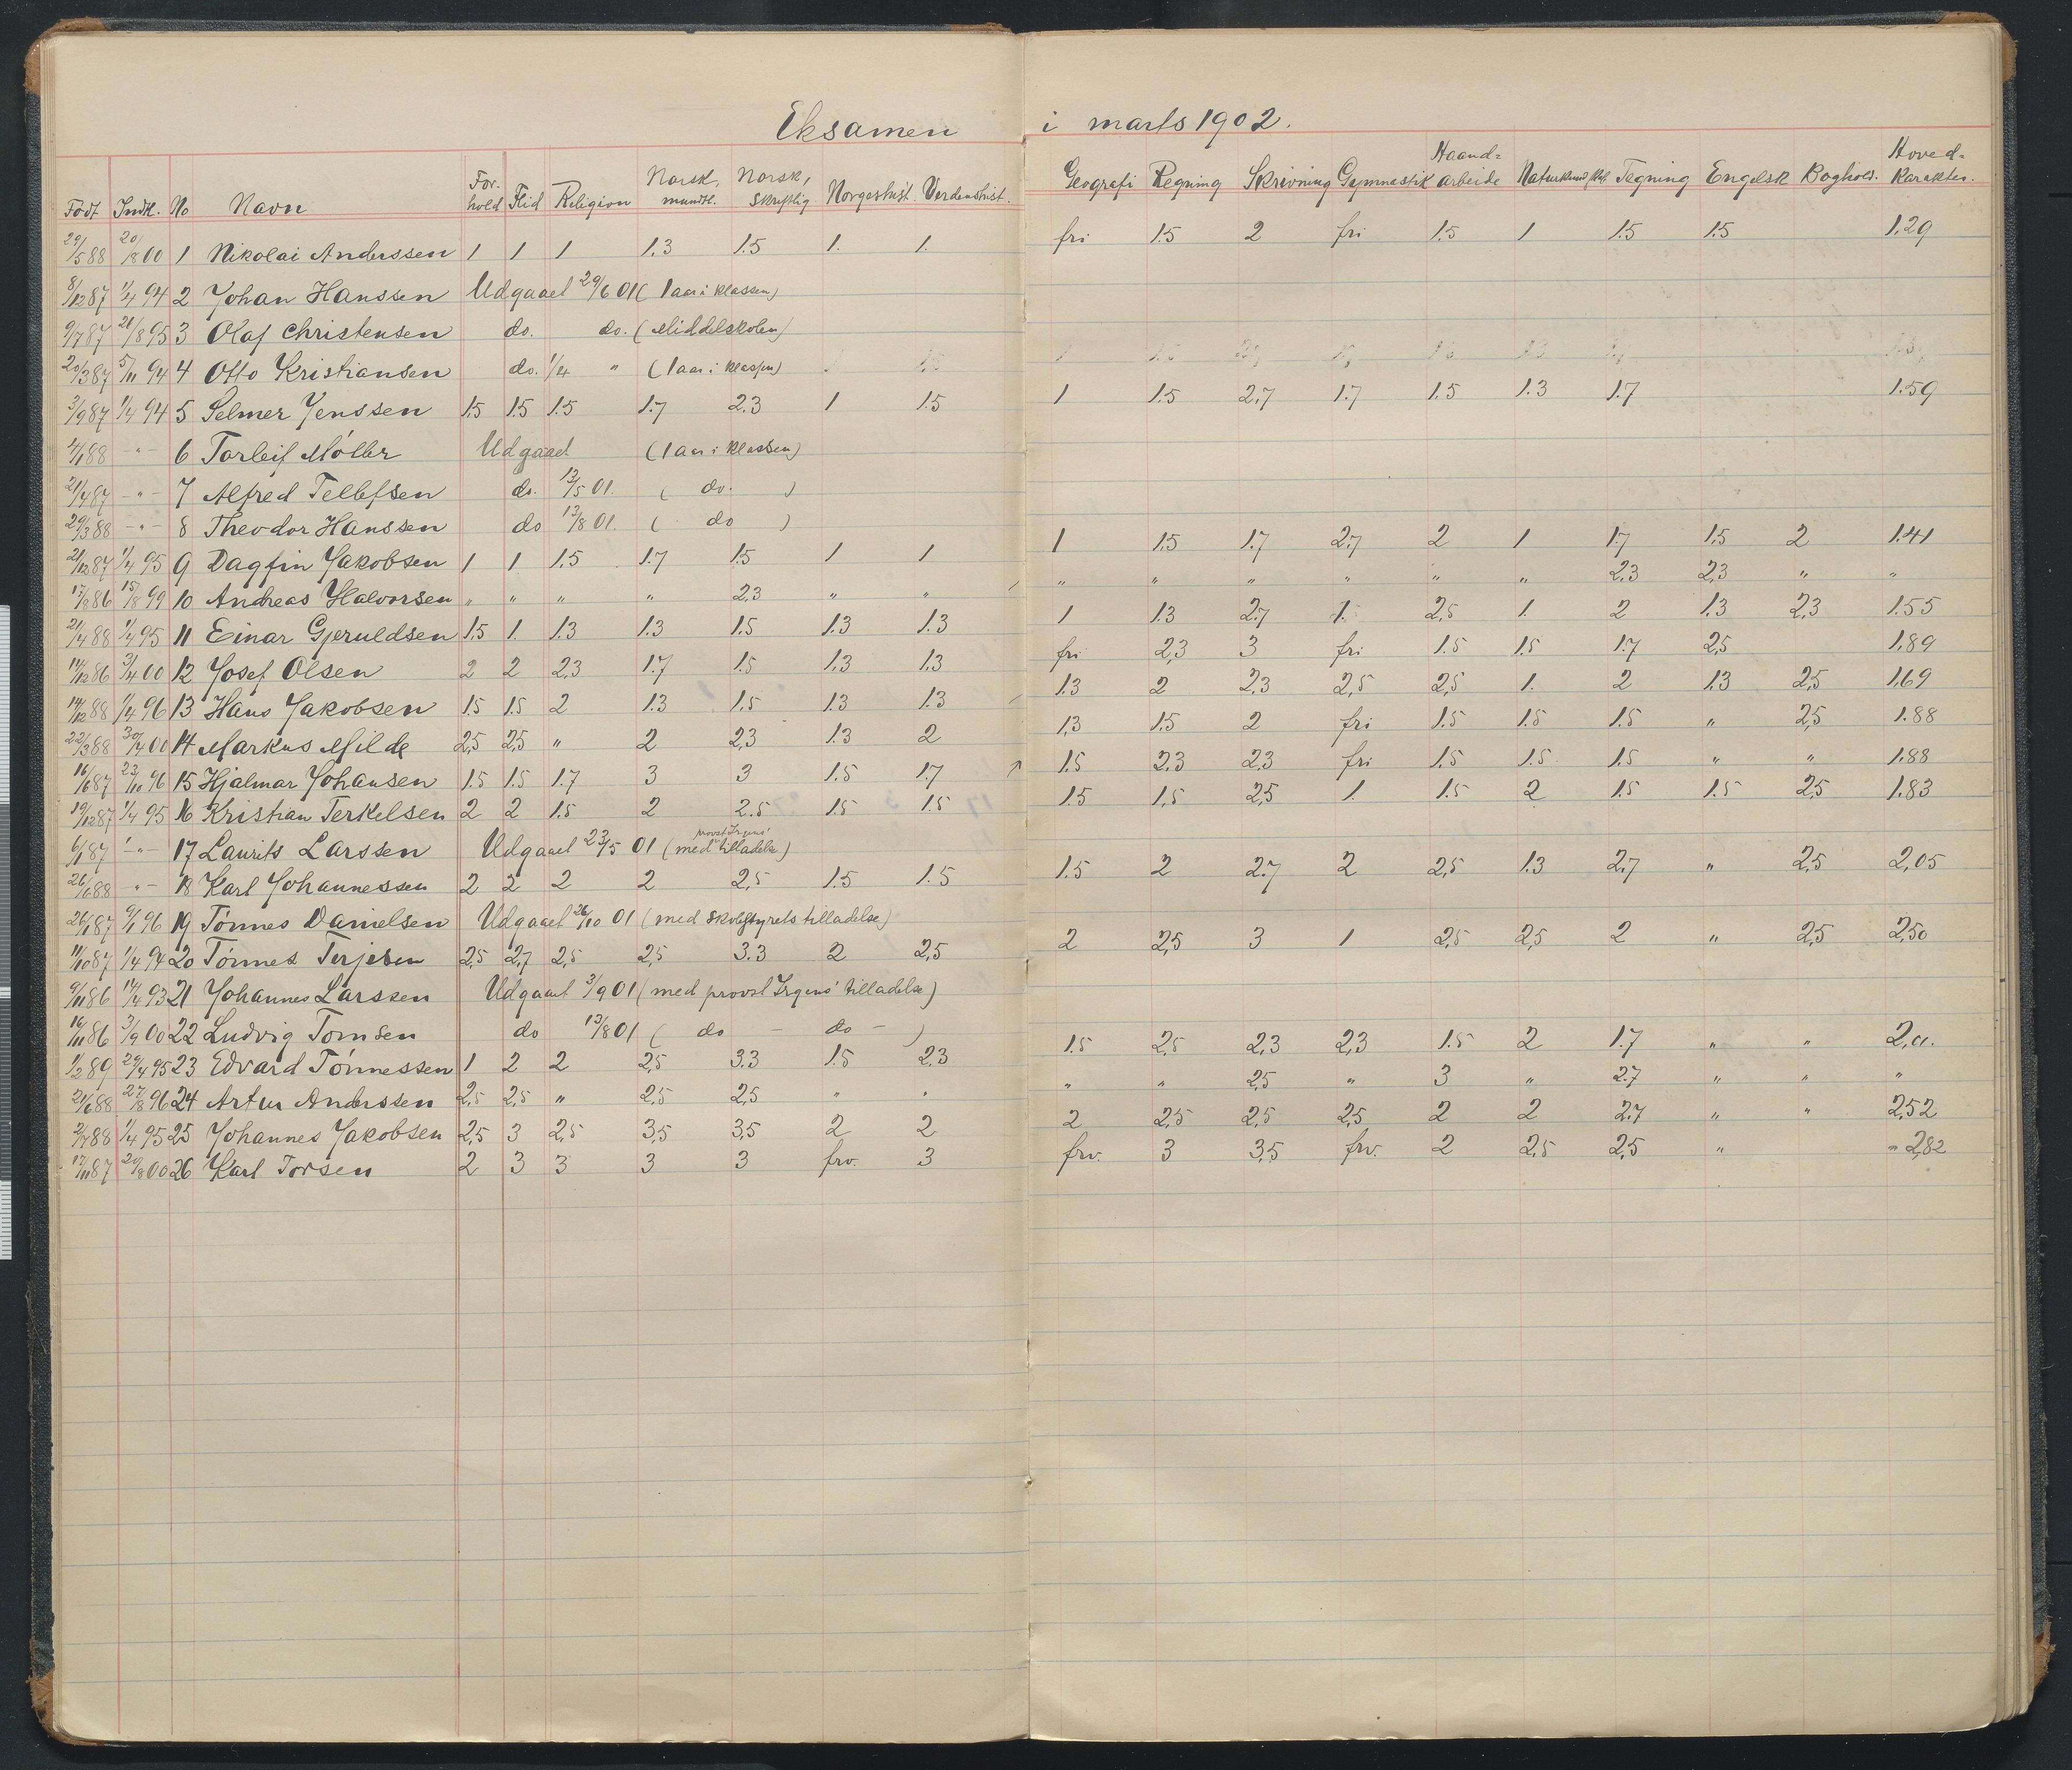 Eksamen i marts 1902.
Født Indk. No Navn Forhold Flid Religion Norsk, mundtl. Norsk, skriftlig Norgeshist. Verdenshist. Geografi Regning Skrivning Gymnastik Haand=arbeide Tegning Engelsk Boghold. Hoved=karakter.
29/5 88 20/8 00 1 Nikolai Anderssen 1 1 1 1.3 1.5 1. 1. fri 1.5 2 fri 1.5 1 1.5 1.5 1.29
8/12 87 1/4 94 2 Johan Hanssen Udgaaet 29/6 01 (1 aar i klassen)
9/7 87 21/8 95 3 Olaf Christensen do. do. (Middelskolen)
20/3 87 5/11 94 4 Otto Kristiansen do. 1/4 " (1 aar i klassen)
3/9 87 1/4 94 5 Selmer Jenssen 1.5 1.5 1.5 1.7 2.3 1 1.5 1 1.5 2,7 1.7 1.5 1.3 1.7 1.59
4/1 88 -"- 6 Torleif Møller Udgaaet (1 aar i klassen)
21/4 87 -"- 7 Alfred Tellefsen do. 13/5 01. ( do. )
29/3 88 -"- 8 Theodor Hanssen do 13/8 01. ( do )
21/12 87 1/4 95 9 Dagfin Jakobsen 1 1 1.5 1.7 1.5 1 1 1 1.5 1.7 2.7 2 1 1.7 1.5 2 1.41
17/8 86 15/8 99 10 Andreas Halvorsen " " " " 2.3 " " " " " " " " 2.3 2.3 " "
21/4 88 1/4 95 11 Einar Gjeruldsen 1.5 1. 1.3 1.3 1.5 1.3 1.3 1 1.3 2.7 1. 2,5 1. 2 1.3 2,3 1.55
14/12 86 3/4 00 12 Josef Olsen 2 2 2.3 1.7 1.5 1.3 1.3 fri 2,3 3 fri 1.5 1.5 1.7 2,5 1,89
14/12 88 1/4 96 13 Hans Jakobsen 1.5 1.5 2 1.3 1.5 1.3 1.3 1.3 2 2.3 2,5 2,5 1. 2 1.3 2,5 1.69
22/3 88 30/4 00 14 Markus Milde 2,5 2,5 " 2 2,3 1.3 2 1,3 1.5 2 fri 1.5 1.5 1.5 " 2,5 1.88
16/6 87 23/11 96 15 Hjalmar Johansen 1.5 1.5 1.7 3 3 1.5 1.7 1.5 2.3 2.3 fri 1.5 1.5 1.5 " " 1.88
19/12 87 1/4 95 16 Kristian Terkelsen 2 2 1.5 2 2.5 1.5 1.5 1.5 1,5 2,5 1. 1.5 2 1.5 1.5 2,5 1.83
6/1 87 -"- 17 Laurits Larssen Udgaaet 23/5 01 (med provst Irgens' tilladelse.)
26/6 88 -"- 18 Karl Johannessen 2 2 2 2 2,5 1.5 1.5 1.5 2 2.7 2 2,5 1.3 2,7 " 2,5 2,05
26/1 87 9/1 96 19 Tønnes Danielsen Udgaaet 26/10 01 (med skolestyrets tilladelse)
11/10 87 1/4 94 20 Tønnes Terjesen 2,5 2,7 2,5 2,5 3.3 2 2,5 2 2,5 3 1 2,5 2,5 2 " 2,5 2,50
9/11 86 14/4 93 21 Johannes Larssen Udgaaet 3/9 01 (med provst Irgens' tilladelse)
16/11 86 3/9 00 22 Ludvig Tomsen do 13/8 01 ( do - do - )
1/2 89 29/4 95 23 Edvard Tønnessen 1 2 2 2,5 3.3 1.5 2.3 1.5 2,5 2,3 2,3 1.5 2 1.7 " "
21/6 88 27/8 96 24 Artur Anderssen 2,5 2,5 " 2,5 2,5 " " " " 2,5 " 3 " 2.7 " " "
2/7 88 1/4 95 25 Johannes Jakobsen 2,5 3 2,5 3,5 3,5 2 2 2 2,5 2,5 2,5 2 2 2.7 " " 2,52
17/11 87 20/8 00 26 Karl Torsen 2 3 3 3 3 frv. 3 frv. 3 3,5 frv. 2 2.5 2,5 " " 2,82